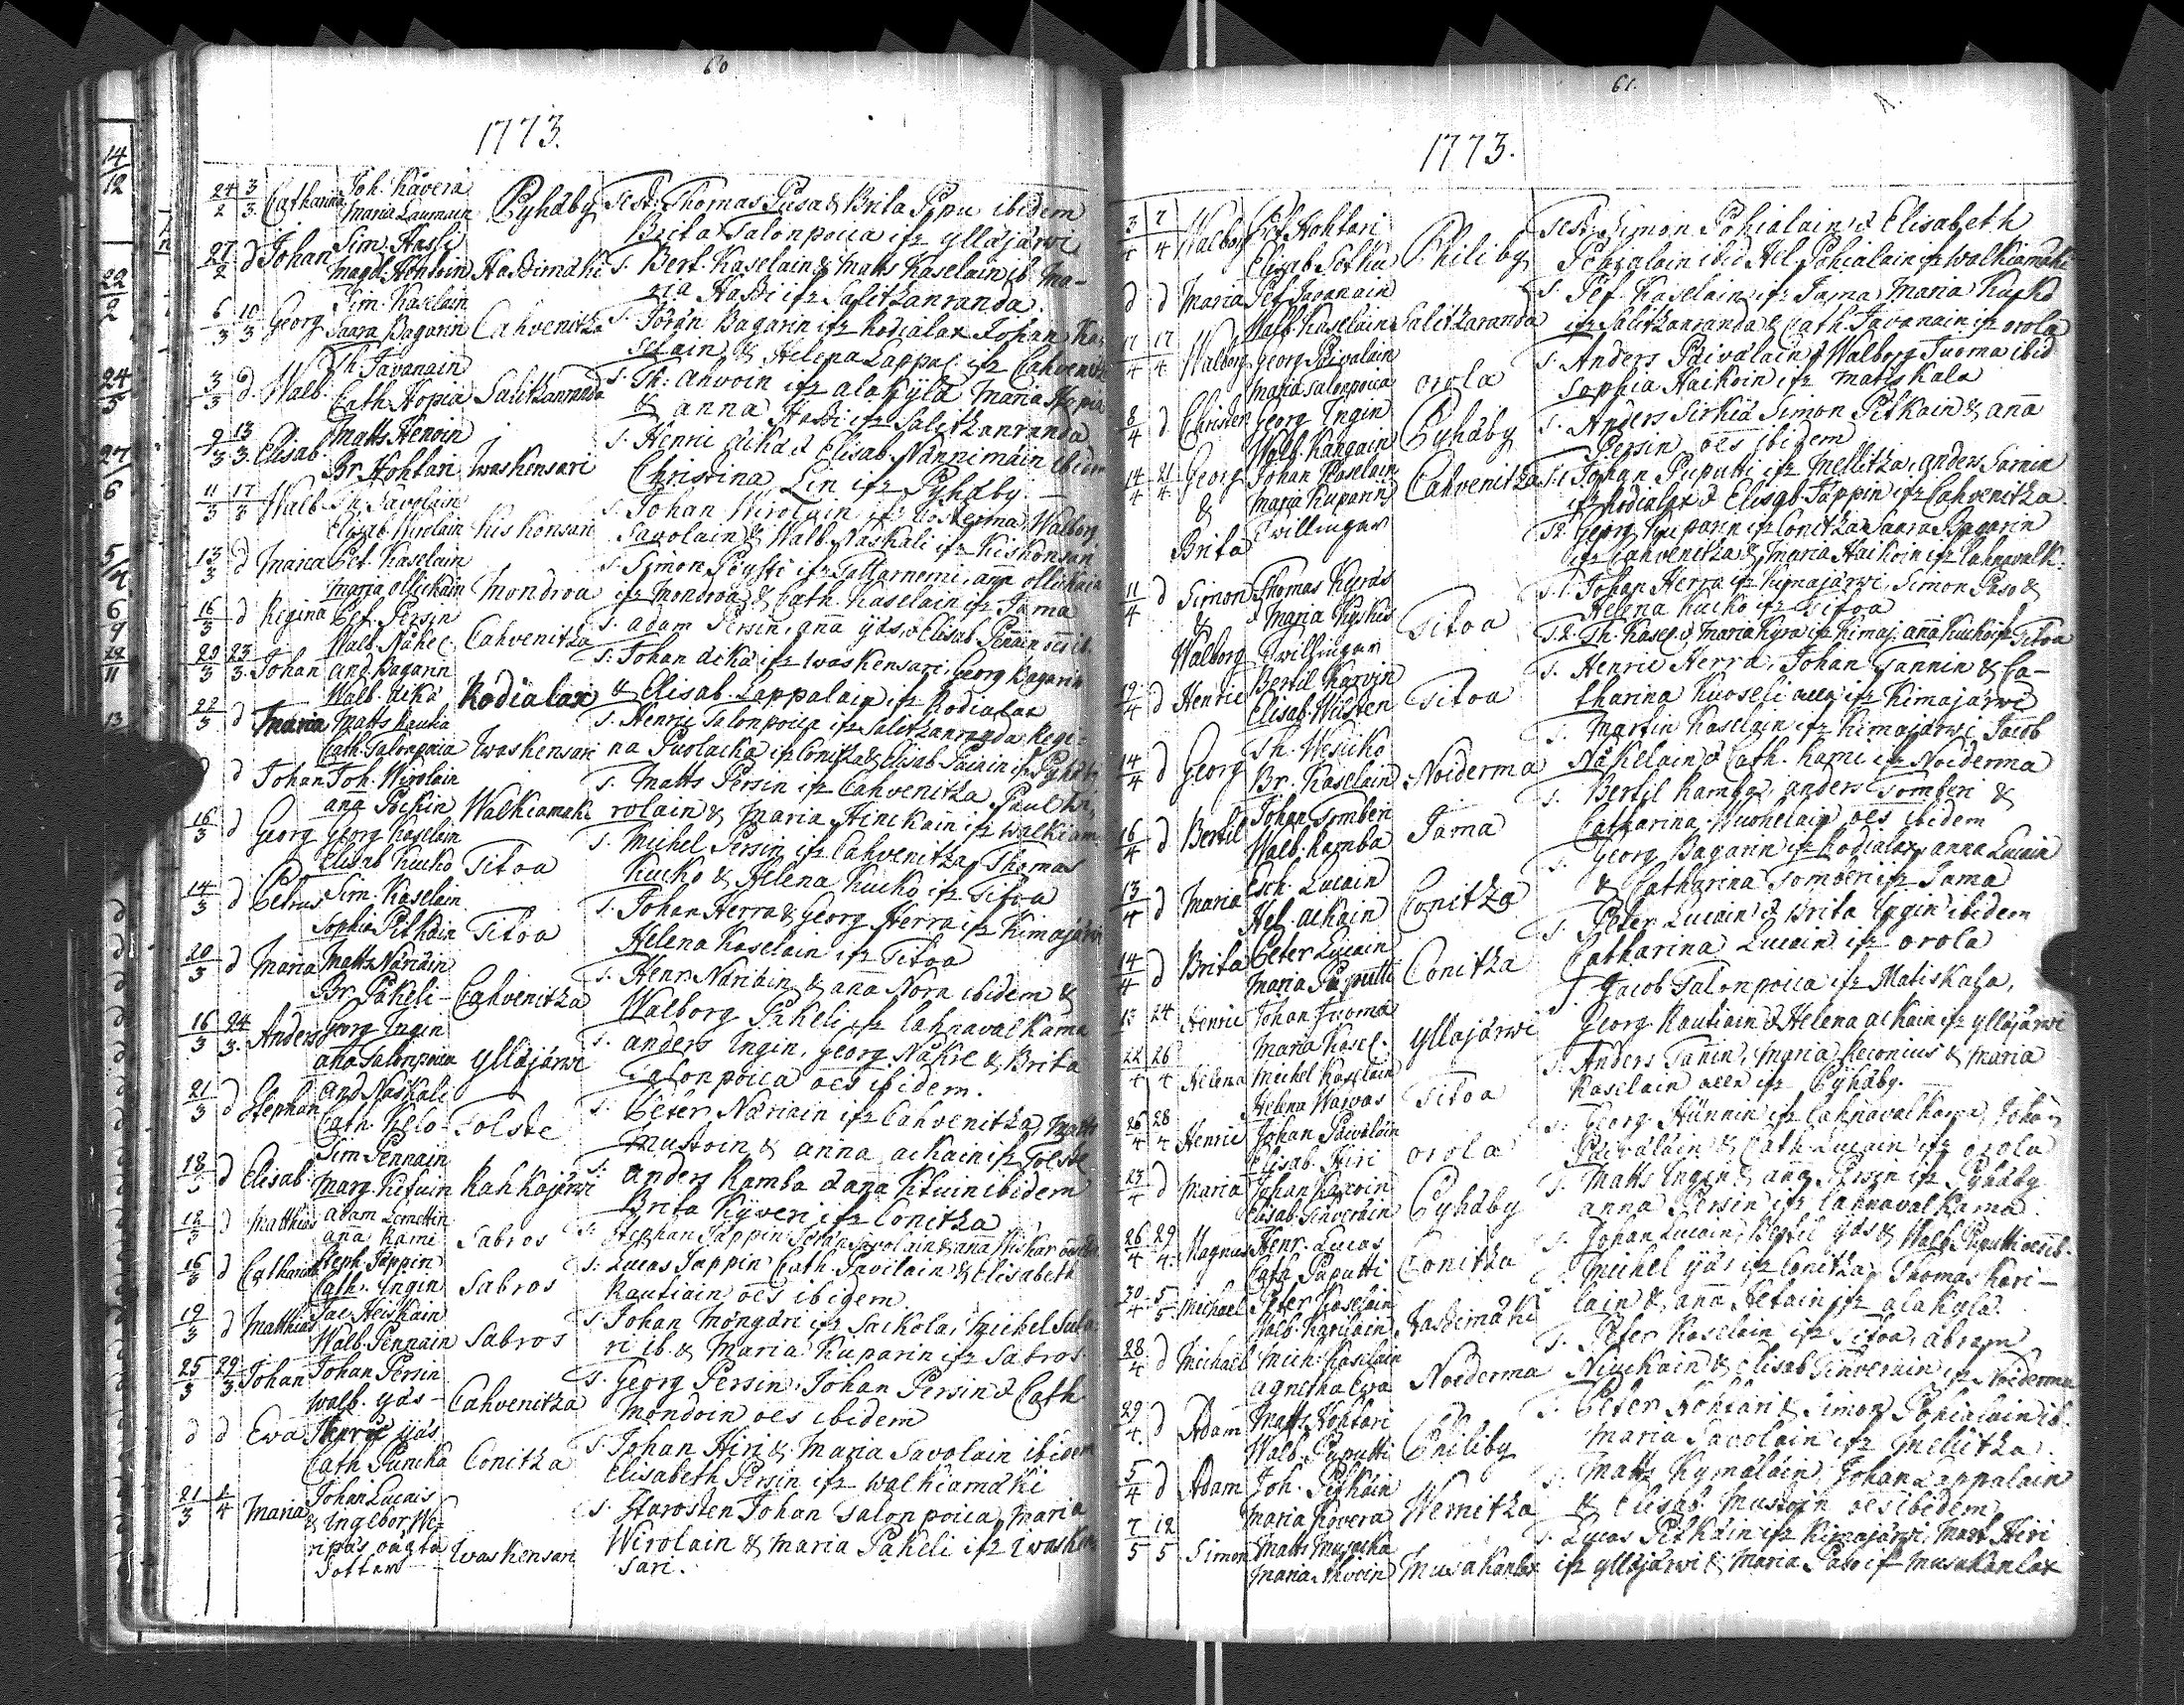 60
1773.
24/2 3/3. Catharina Joh. Kävera
Maria Laumain Pyhäby Test: Thomas Pusa & Brita Pipu ibidem
Brita Salonpoica ifr Yllajärwi
27/2 d Johan Sim. Hassi
Magd. Henloin Hassimäki S. Bert. Kaselain & Matts Kaselain ib. Ma-
ria Hassi ifr Salitzanranda
6/3 10/3 Georg Sim. Kaselain
Saara Bagarin Cahvenitza S. Jöran Bagarin ifr Rodialax Johan Ka-
selain & Helena Lappal. ifr Cahvenitz
3/3 d. Walb. Th. Javanain
Cath. Hopia Salitzanranda S. Th: Ahvoin ifr Alakylä Maria Hopia
& Anna Hassi ifr Salitzanranda
9/3 13/3. Elisab. Matts Henoin
Br. Hohtari Iwaskensari S. Henric Äikä & Elisab. Nännimäin ibidem
Christina Lin ifr Pyhäby.
11/3 17/3 Walb. Savolain
Elisab. Wirolain Kiskonsari S. Johan Wirolain ifr Walborg
Savolain & Walb. Naskali ifr Kiskonsari
13/3 d Maria Pet. Kaselain
Maria Ollikain Mondroa S. Simon Pöysti ifr Anna Ollikain
ifr Mondroa & Cath. Kaselain ifr Jama
16/3 d Regina Pet. Persin
Walb. Näkel. Cahvenitza S. Adam Persin, Anna Yäs & Elisab. Pennain
20/3 23/3. Johan And. Bagarin
Walb. Äikä Rodialax S. Johan Äikä ifr Iwaskensari, Georg Bagarin
& Elisab. Lappalain ifr Rodialax
22/3 d Maria Matts Rautia
Cath. Salonpoica Iwaskensari S. Henric Salonpoica ifr Salitzanranda Regi-
na Puolacka ifr Conitza & Elisab. Painin ifr Pyhäb.
d Johan Joh. Wirolain
Anna Pöckin Walkiamäk. S. Matts Persin ifr Cahvenitza Paul Wi-
rolain & Maria Hinckain ifr Walkiam.
16/3 d Georg Georg Kaselain
Elisab. Kucko Titoa S. Michel Persin ifr Cahvenitza, Thomas
Kucko & Helena Kucko ifr Titoa
14/3 d Petrus Sim. Kaselain
Sophia Pitkäin Titoa S. Johan Herra & Georg Herra ifr Kimajärwi
Helena Kaselain ifr Titoa
20/3 d Maria Matts Näriäin
Br. Päkeli - Cahvenitza S. Henr. Näriäin & Anna Nora ibidem &
Walborg Päkeli ifr Lahnavalkama
16/3 24/3. Anders Georg Ingin
Anna Salonpoica Yllajärwi S. Anders Ingin, Georg Näkre & Brita
Salonpoica oes ibidem.
21/3 d Stephan And. Naskali
Cath. Kelo - Tolste S. Peter Näriain ifr Cahvenitza, Matts
Mustoin & Anna Ackain ifr Tolste
18/3 d Elisab. Sim. Pennain
Marg. Kituin Kahkajärwi S. Anders Ramba & Anna Kituin ibidem
Brita Kyveri ifr Conitza
18/3 d Matthias Adam Lemettin
Anna Rami Sabros S. Stephan Jappin Johan Savolain & Anna
16/3 d Catharina Steph. Jappin
Cath. Ingin Sabros S. Lucas Jappin Cath. Pavilain & Elisabeth
Rautiain oes ibidem
19/3 d Matthias Jac. Heiskain
Walb. Pennain Sabros S. Johan Möngäri ifr Sackola, Michel Sula-
ri ib. & Maria Kuparin ifr Sabros.
25/3 29/3 Johan Johan Persin
Walb. Yäs - Cahvenitza S. Georg Persin, Johan Persin & Cath.
Mondoin oes ibidem
d d Ewa Henric Yäs
Cath. Puncka Conitza S. Johan Hiri & Maria Savolain ibidem
Elisabeth Persin ifr Walkiamäki
21/3 1/4 Maria Johan Lucais
& Ingebor Wi-
ripäs oägta
dotter Iwaskensari S. Starosten Johan Salonpoica, Maria
Wirolain & Maria Päkeli ifr Iwasken-
sari.
61.
1773.
3/4 7/4 Walborg Pet. Hohtari
Elisab. Sotku Philiby Test: Simon Pohialain & Elisabeth
Pohialain ibid. Hel. Pohialain ifr Walkiamäki
d d Maria Pet. Javanain
Walb. Kaselain Salitzaranda S. Pet. Kaselain ifr Jama, Maria Kucko
ifr Salitzanranda & Cath. Javanain ifr Orola
11/4 17/4 Walborg Georg Päivälain
Maria Salonpoica Orola S. Anders Päivälain & Walborg Tuoma ibid
Sophia Haikoin ifr Matiskala
8/4 d Christer Georg Ingin
Walb. Kangain Pyhäby S. Anders Sirkiä Simon Pitkain & Anna
Persin oes ibidem
14/4 21/4 Georg & Brita Johan Kaselain
Maria Kuparin
Twillingar Cahvenitza S. 1. Johan Puputti ifr Mellitza, Anders Sarain
ifr Rodialax & Elisab. Jappin ifr Cahvenitza
S. 2. Georg Kuparin ifr Conitza Saara Bagarin
ifr Cahvenitza & Maria Haikoin ifr Lahnavalk.
11/4 d Simon & Walborg Thomas Kyräs
& Maria Kyykis
Twillingar Titoa S. 1. Johan Herra ifr Kimajärwi, Simon Paso &
Helena Kucko ifr Titoa
S. 2. Th. Kasel. & Maria Kyrä ifr Kimaj. Anna Kucko ifr Titoa
19/4 d Henric Bertil Karvin
Elisab. Wilsten Titoa S. Henric Herra, Johan Tannin & Ca-
tharina Kuoseli alla ifr Kimajärwi
14/4 d Georg Th. Wesicko
Br. Kaselain Noiderma S. Martin Kaselain ifr Kimajärwi Jacob
Näkelain & Cath. Rami ifr Noiderma
16/4 d Bertil Johan Tomberi
Walb. Ramba Jama S. Bertil Ramba, Anders Tomberi &
Catharina Wuohelain oes ibidem
13/4 d Maria Esch. Lucain
Hel. Ackain Conitza S. Georg Bagarin ifr Rodialax, Anna Lucain
& Catharina Tomberi ifr Jama
14/4 d Brita Peter Lucain
Maria Puputti Conitza S. Peter Lucain & Brita Ingin ibidem
Catharina Lucain ifr Orola
13 24 Henric Johan Tuoma
Maria Kasel. Yllajärwi S. Jacob Salonpoica ifr Matiskala,
Georg Rautiain & Helena Ackain ifr Yllajärwi
22/4 26/4 Helena Michel Kaselain
Helena Warvas Titoa S. Anders Tanin, Maria Reconius & Maria
Kaselain alla ifr Pyhäby.
26/4 28/4 Henric Johan Päiväläin
Elisab. Hiri Orola S. Georg Hünnin ifr Lahnavalkama, Johan
Päiväläin & Cath. Lucain ifr Orola
23/4 d Maria Johan Karvin
Elisab. Sinveräin Pyhäby S. Matts Ingin & Anna Persin ifr Pyhäby
Anna Persin ifr Lahnavalkama.
26/4 29/4. Magnus Henr. Lucas
Cath. Puputti Conitza S. Johan Lucain, Bertil Yäs & Walb. Puputti oes ib.
30/4 5/5. Michael Peter Kaselain
Walb. Karilain Hassimäki S. Michel Yäs ifr Conitza, Thomas Kari-
lain & Anna Hetain ifr Alakylä.
28/4 d Michael Mich. Kaselain
Agnetha Ewa Noiderma S. Peter Kaselain ifr Titoa, Abram
Niuckain & Elisab. Sinverain ifr Noiderma
29/4. d Adam Matts Hohtari
Walb. Puputti Philiby S. Peter Hohtari & Simon Pohialain ib.
Maria Savolain ifr Mellitza.
5/4 d Adam Joh. Pitkäin
Maria Kävera Wernitza S. Matts Kymäläin, Johan Lappalain
& Elisab. Mustoin oes ibidem
7/5 12/5 Simon Matts Musacka
Maria Ahvoin Musakanlax S. Lucas Pitkäin ifr Kimajärwi, Mart. Hiri
ifr Yllajärwi & Maria Paso ifr Musakanlax